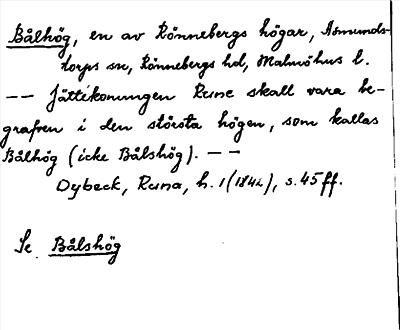 Bålhög, en av Rönnebergs högar, Asmunds-
torps sn, Rönnebergs hd, Malmöhus l.
-- Jättekonungen Rune skall vara be-
grafven i den största högen, som kallas
Bålhög (icke Bålshög). --
Dybeck, Runa, h. 1 (1842), s. 45 ff.
Se Bålshög